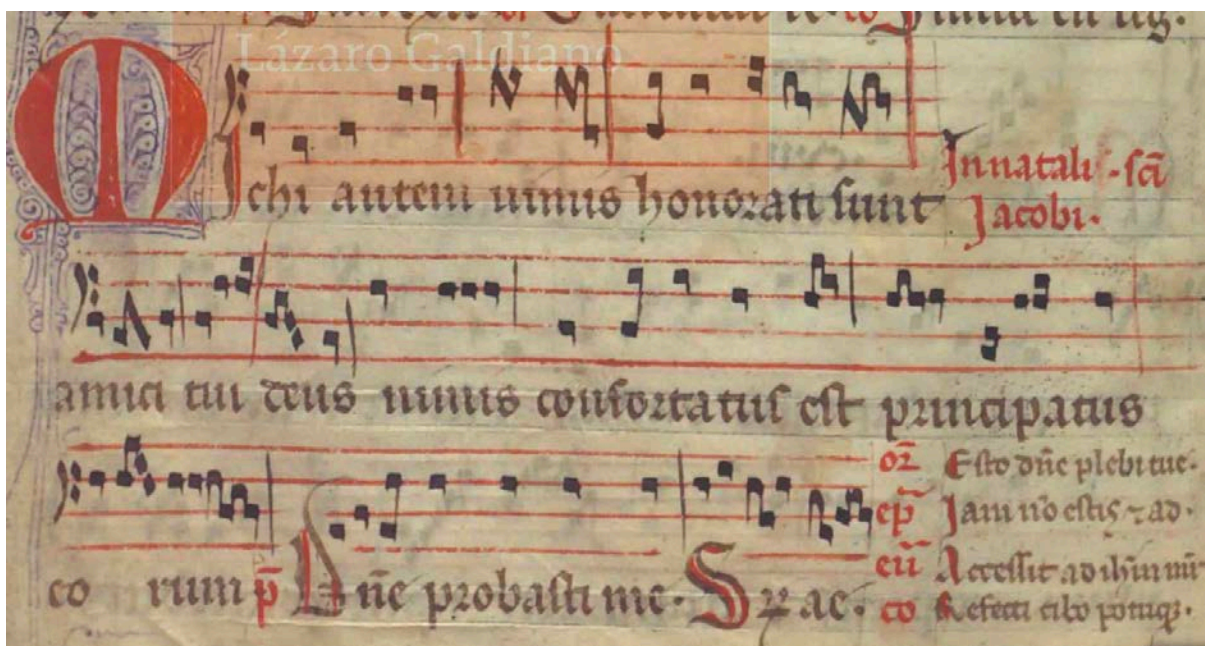 Lázaro Galdiano
Michi autem nimis honorati sunt
In natali · sc̄i
Jacobi ·
amici tui deus nimis confortatus est principatus
co rum p̄ Dn̄e probasti me · ae ·
Esto dn̄e plebi tue ·
ep̄ Jam nō estis ⁊ ad ·
eū Accessit ad ihm̄
co Refecti cibo potuqꝫ ·